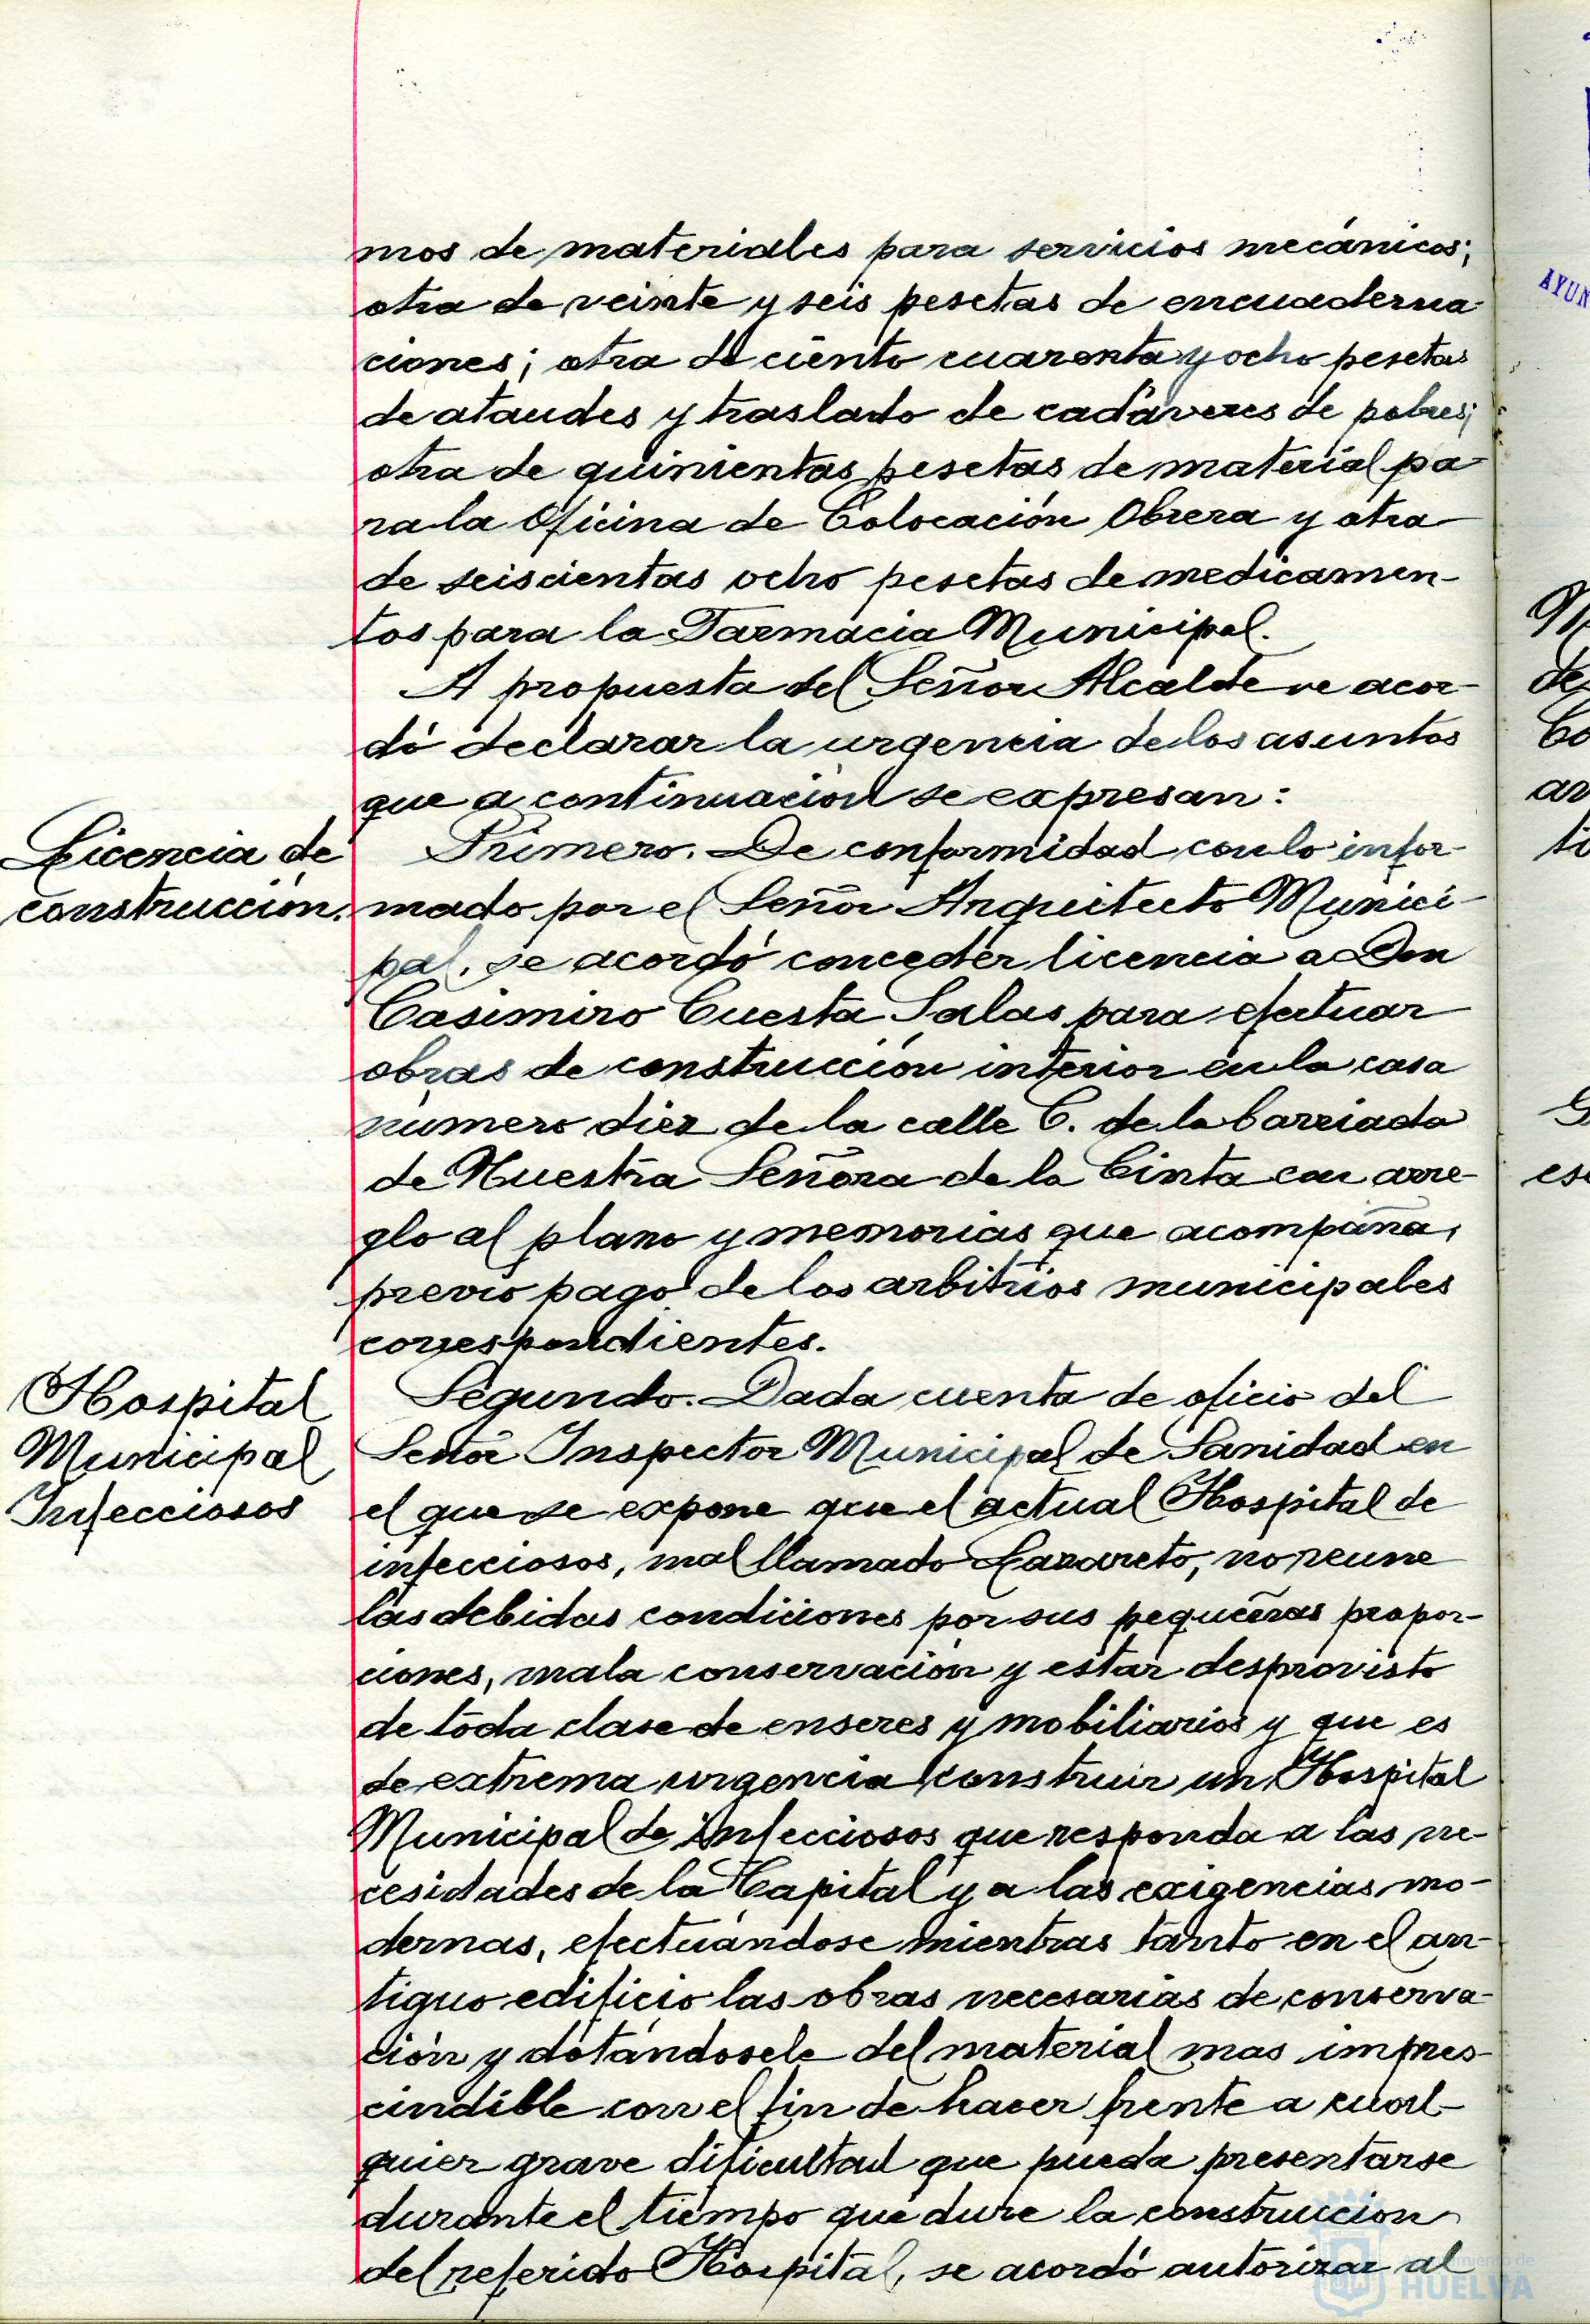 mos de materiales para servicios mecánicos;
otra de veinte y seis pesetas de encuaderna-
ciones; otra de ciento cuarenta y ocho pesetas
de ataudes y traslado de cadáveres de pobres;
otra de quinientas pesetas de material pa-
ra la Oficina de Colocación Obrera y otra
de seiscientas ocho pesetas de medicamen-
tos para la Farmacia Municipal.
A propuesta del Señor Alcalde se acor-
dó declarar la urgencia de los asuntos
que a continuación se expresan:
Licencia de
construcción.
Primero. De conformidad con lo infor-
mado por el Señor Arquitecto Munici-
pal, se acordó conceder licencia a Don
Casimiro Cuesta Salas para efectuar
obras de construcción interior en la casa
número diez de la calle C. de la barriada
de Nuestra Señora de la Cinta con arre-
glo al plano y memorias que acompaña,
previo pago de los arbitrios municipales
correspondientes.
Hospital
Municipal
Infecciosos
Segundo. Dada cuenta de oficio del
Señor Inspector Municipal de Sanidad en
el que se expone que el actual Hospital de
infecciosos, mal llamado Lazareto, no reune
las debidas condiciones por sus pequeñas propor-
ciones, mala conservación y estar desprovisto
de toda clase de enseres y mobiliarios y que es
de extrema urgencia construir un Hospital
Municipal de Infecciosos que responda a las ne-
cesidades de la Capital y a las exigencias mo-
dernas, efectuándose mientras tanto en el an-
tiguo edificio las obras necesarias de conserva-
ción y dotándosele del material mas impres-
cindible con el fin de hacer frente a cual-
quier grave dificultad que pueda presentarse
durante el tiempo que dure la construccion
del referido Hospital, se acordó autorizar al
Ayuntamiento de
HUELVA
AYUN
de
Co
ar
ti
es